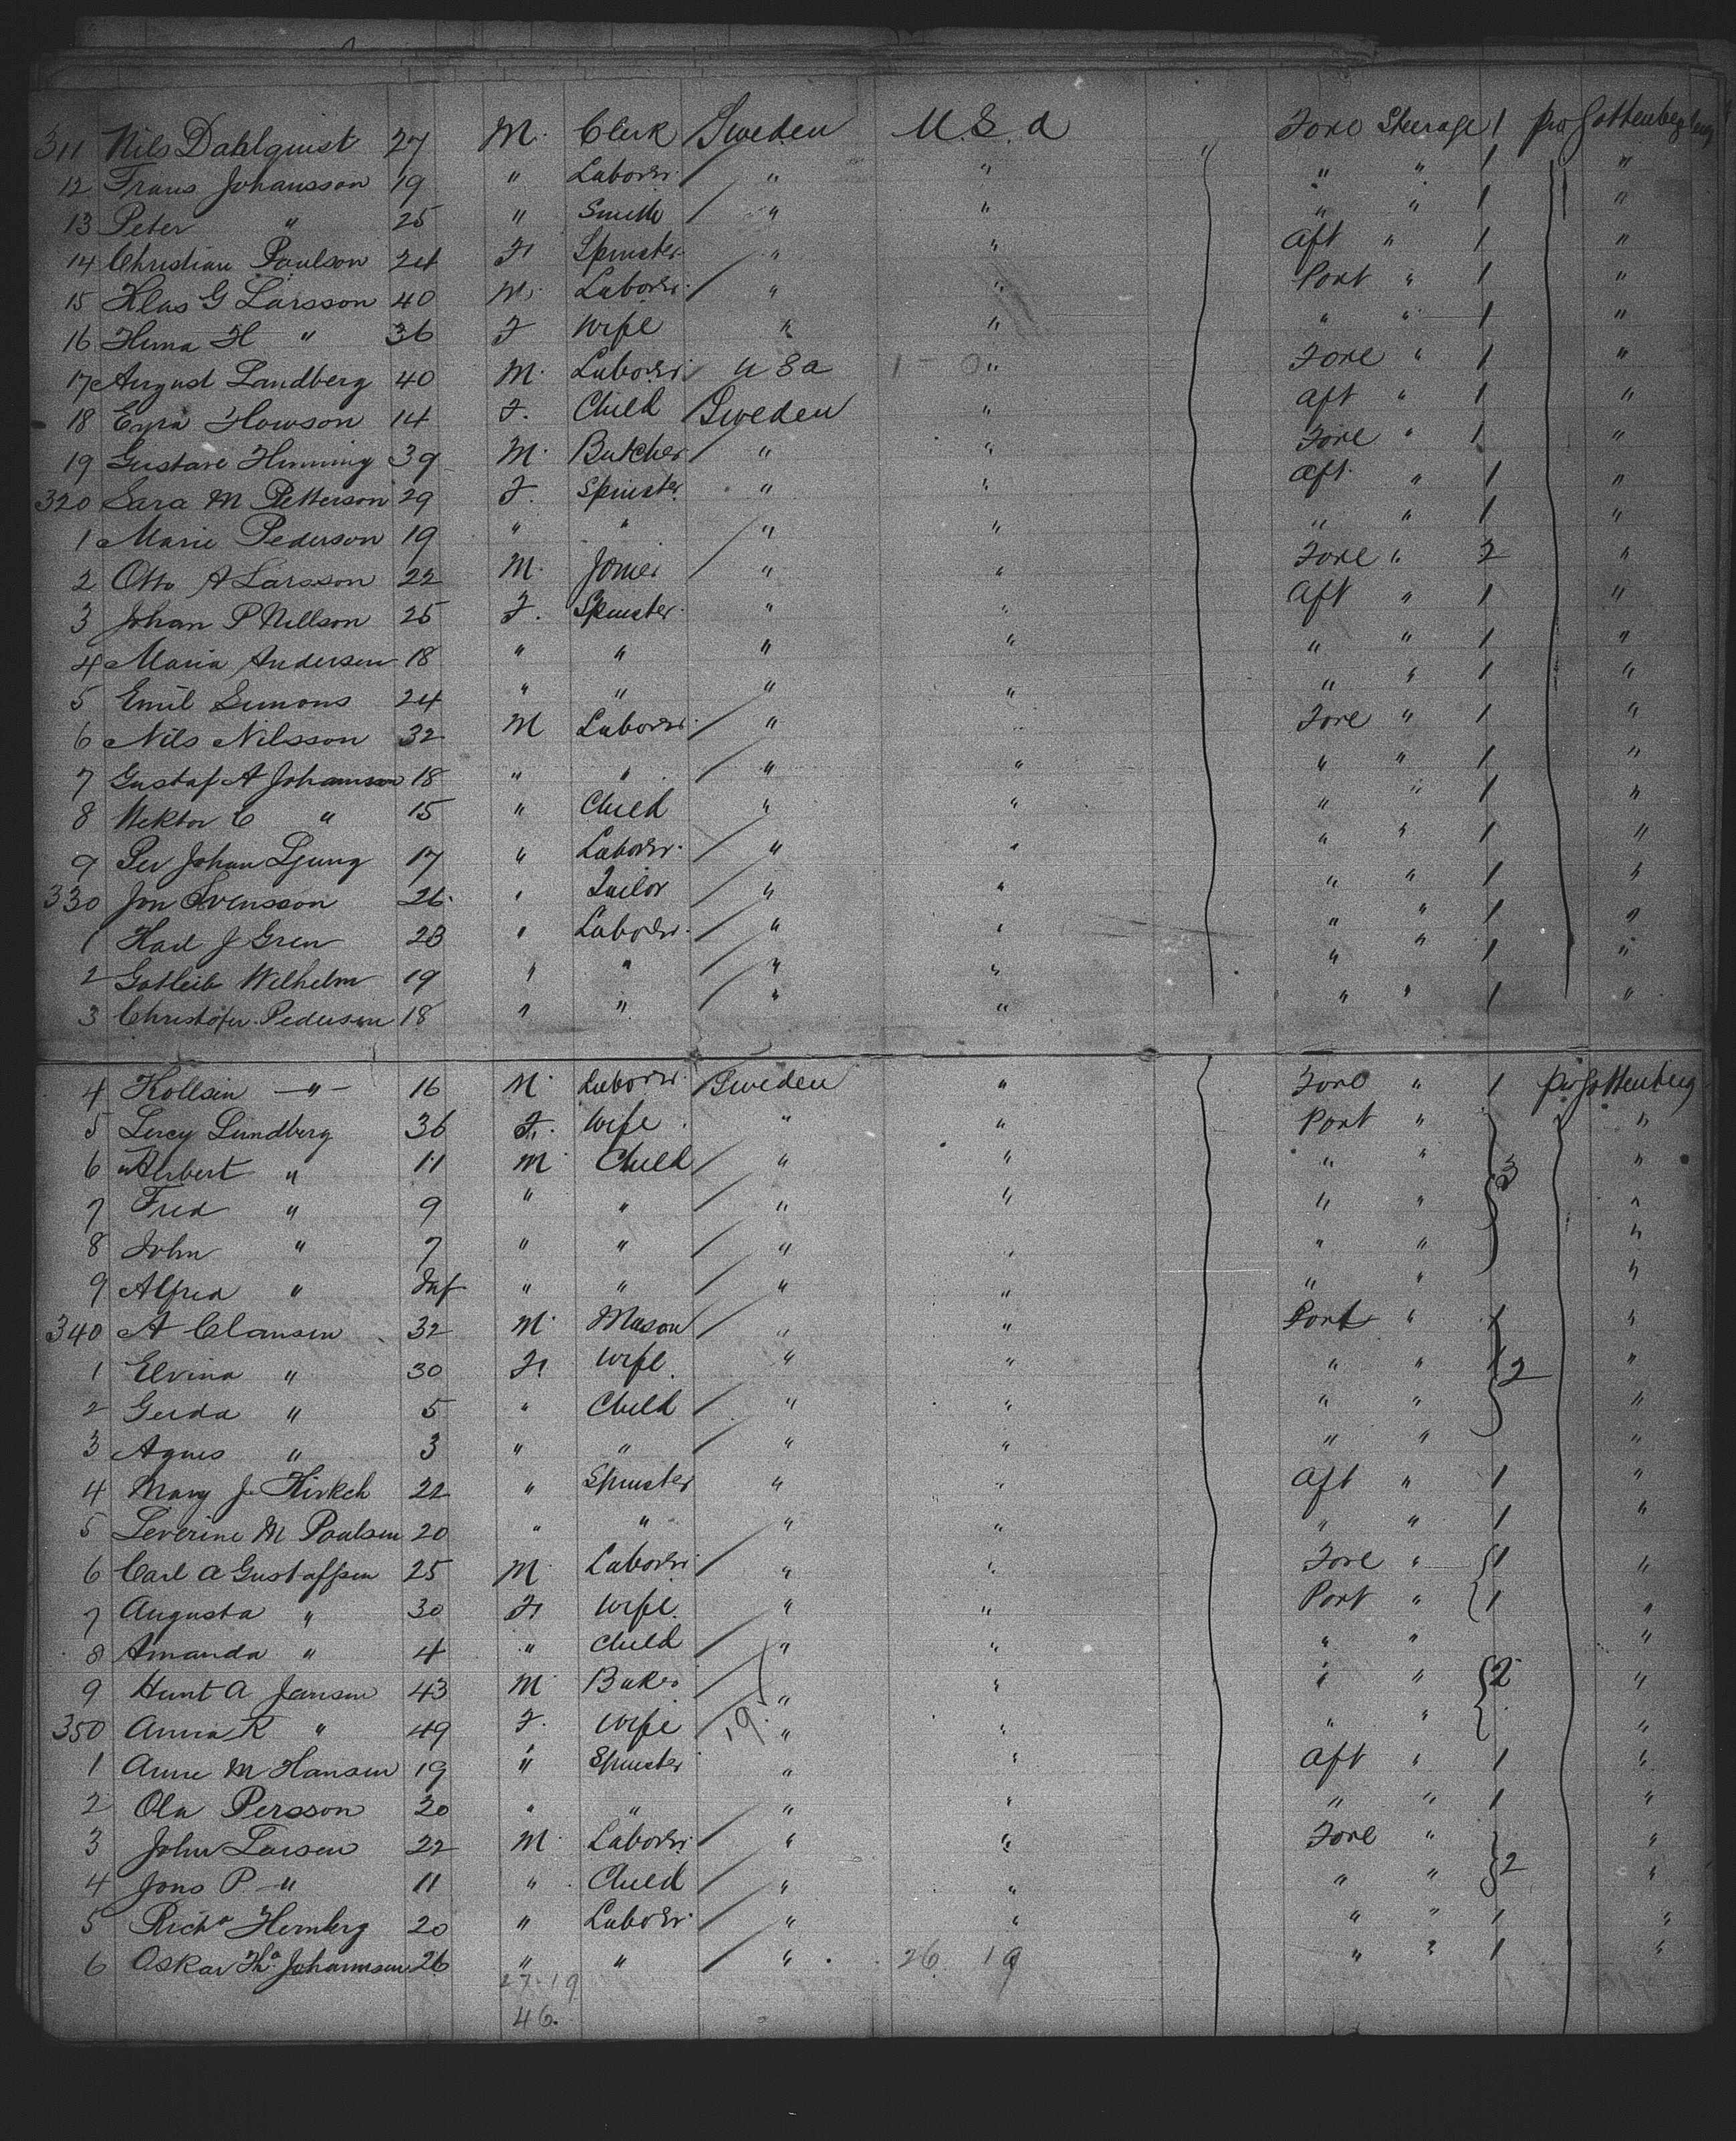 311 Nils Dahlquist 27 M. Clerk Sweden U.S.a Fore Steerage 1 pr Gottenberg
12 Frans Johansson 19 " Laborer " " " " 1 "
13 Peter " 25 " Smith " " " " 1 "
14 Christian Poulson 24 F Spinster " " Aft " 1 "
15 Klas G Larsson 40 M. Laborer " " Port " 1 "
16 H " 36 F Wife " " " " 1 "
17 August Landberg 40 M. Laborer U S a 1 - 0 " Fore " 1 "
18 14 F. Child Sweden " Aft " 1 "
19 Gustave Hinning 39 M. Butcher " " Fore " 1 "
320 Sara M Petterson 29 F. Spinster " " Aft. " 1 "
1 Marie Pederson 19 " " " " " " 1 "
2 Otto A Larsson 22 M. Joiner " " Fore " 2 "
3 Johan P Nillson 25 F. Spinster " " Aft " 1 "
4 Maria Andersen 18 " " " " " " 1 "
5 Emil Simons 24 " " " " " " 1 "
6 Nils Nilsson 32 M Laborer " Fore " 1 "
7 Gustaf A Johansson 18 " " " " " " 1 "
8 Wektor C " 15 " Child " " " " 1 "
9 Per Johan Ljung 17 " Laborer " " " " 1 "
330 Jon Svensson 26 " Tailor " " " " 1 "
1 J Gren 28 " Laborer " " " " 1 "
2 Gotleib Wilhelm 19 " " " " " " 1 "
3 Christofer Pedersen 18 " " " " " " 1 "
4 Kollsin -"- 16 M. Laborer Sweden " Fore " 1 pr Gottenberg
5 Lercy Lundberg 36 F. Wife " " Port " "
6 Herbert " 11 M Child " " " " 3 "
7 Fred " 9 " " " " " " "
8 John " 7 " " " " " " "
9 Alfred " Inf " " " " " " "
340 A Clausen 32 M. Mason " " Port " 1 "
1 Elvina " 30 F. Wife " " " " 1 2 "
2 Gerda " 5 " Child " " " " "
3 Agnes " 3 " " " " " " "
4 Mary J. Kirkeh 22 " Spinster " " Aft " 1 "
5 Severine M Poulsen 20 " " " " " " 1 "
6 Carl A Gustaffsen 25 M. Laborer " " Fore " 1 "
7 Augusta " 30 F. Wife " " Port " 1 "
8 Amanda " 4 " Child " " " " "
9 Hunt A Jansen 43 M Baker " " " " 2 "
350 Anna K " 49 F. Wife 19 " " " " "
1 Anne M Hansen 19 " Spinster " " Aft " 1 "
2 Ola Persson 20 " " " " " " 1 "
3 John Larsen 22 M Laborer " " Fore " "
4 Jons P " 11 " Child " " " " 2 "
5 Richd Hernberg 20 " Laborer " " " " 1 "
6 Oskar Johannsen 26 " " " 26 19 " " 1 "
27-19
46.